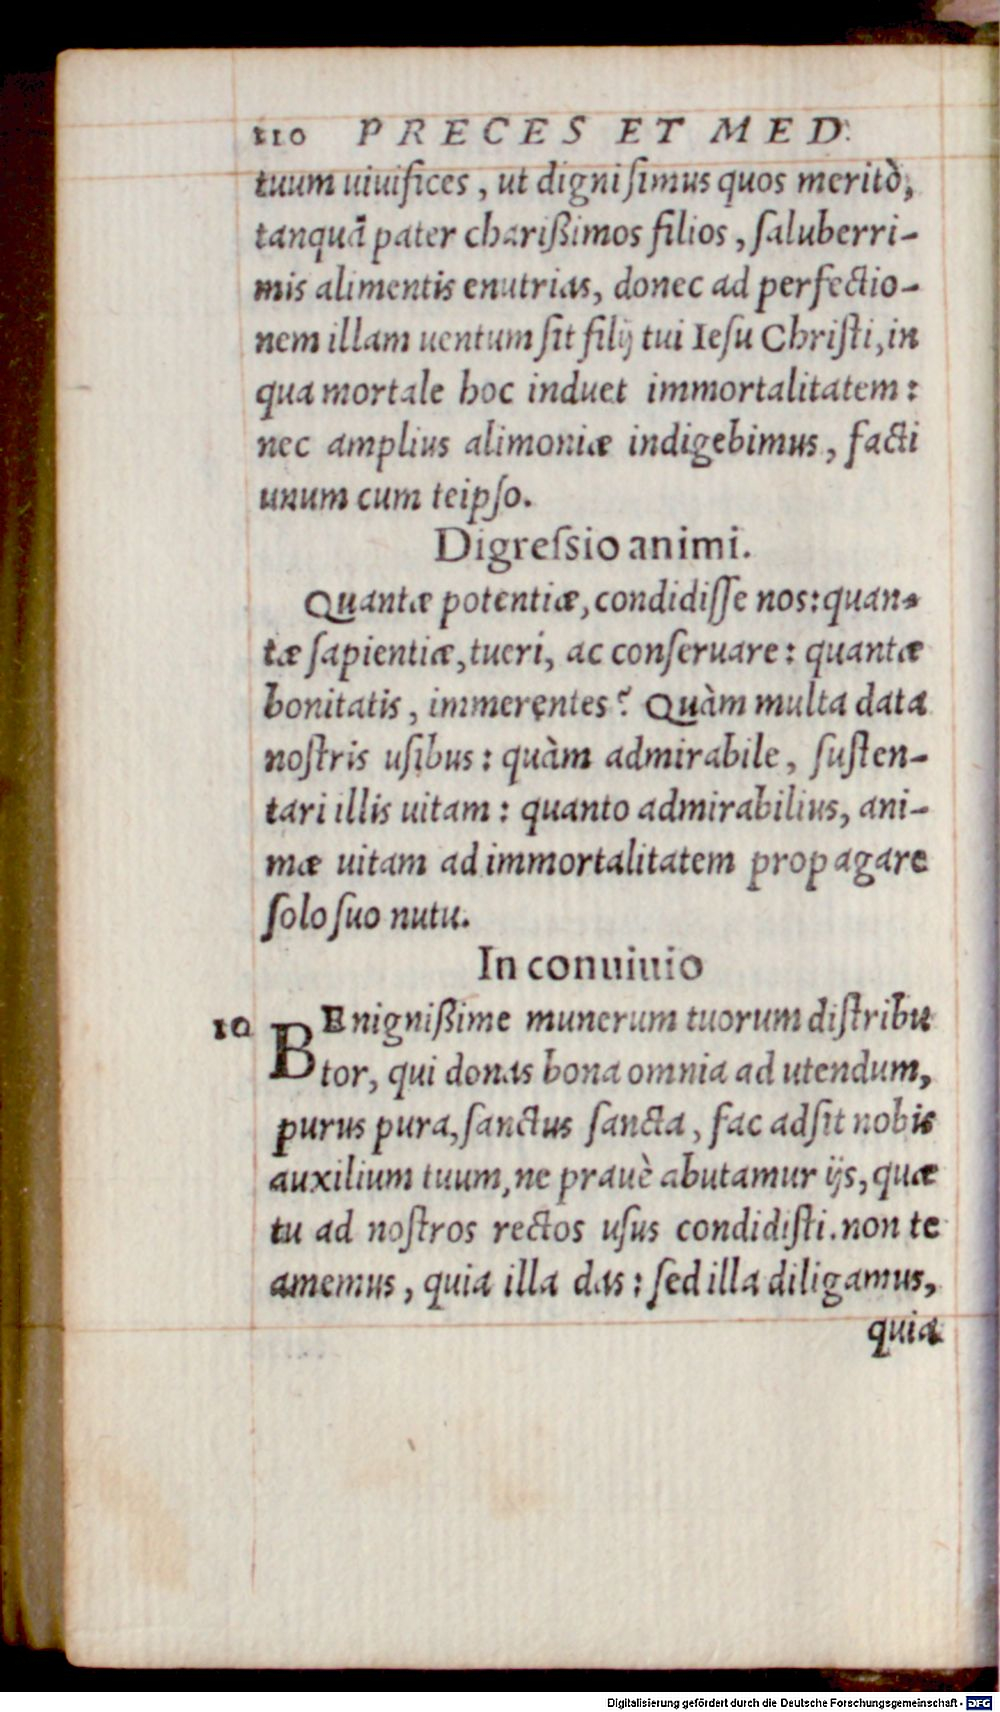 110 PRECES ET MED.
tuum uiuifices, ut digni simus quos meritò,
tanquā pater charißimos filios, saluberri-
mis alimentis enutrias, donec ad perfectio-
nem illam uentum sit filij tui Iesu Christi, in
qua mortale hoc induet immortalitatem:
nec amplius alimoniæ indigebimus, facti
unum cum teipso.
Digressio animi.
Quantæ potentiæ, condidisse nos: quan-
tæ sapientiæ, tueri, ac conseruare: quantæ
bonitatis, immerentes? Quàm multa data
nostris usibus: quàm admirabile, susten-
tari illis uitam: quanto admirabilius, ani-
mæ uitam ad immortalitatem propagare
solo suo nutu.
In conuiuio
10 BEnignißime munerum tuorum distribu
tor, qui donas bona omnia ad utendum,
purus pura, sanctus sancta, fac adsit nobis
auxilium tuum, ne prauè abutamur ijs, quæ
tu ad nostros rectos usus condidisti. non te
amemus, quia illa das: sed illa diligamus,
quia
Digitalisierung gefördert durch die Deutsche Forschungsgemeinschaft - DFG